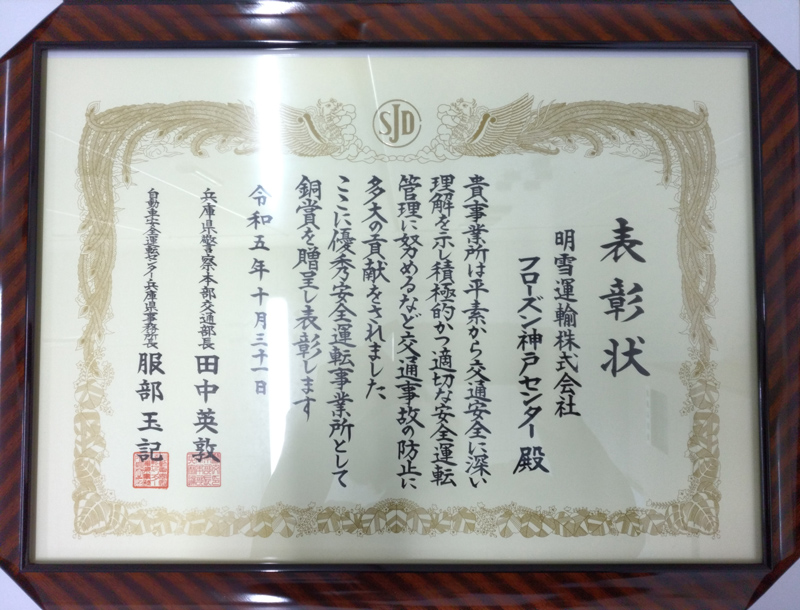 SJD
表彰状
明雪運輸株式会社
フローズン神戸センター殿
貴事業所は平素から交通安全に深い
理解を示し積極的かつ適切な安全運転
管理に努めるなど交通事故の防止に
多大の貢献をされました
ここに優秀安全運転事業所として
銅賞を贈呈し表彰します
令和五年十月三十一日
兵庫県警察本部交通部長 田中英敦
自動車安全運転センター兵庫県事務所長 服部玉記